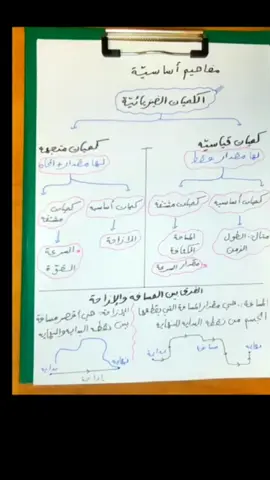 مفاهيم أساسية
الكميات الفيزيائية
كميات قياسية
لها مقدار فقط
كميات أساسية
كميات مشتقة
مثال: الطول
الزمن
المساحة
الكثافة
مقدار السرعة
كميات متجهة
لها مقدار واتجاه
كميات أساسية
كميات مشتقة
الإزاحة
السرعة
القوة
الفرق بين المسافة والإزاحة
المسافة: هي مقدار المسافة التي يقطعها
الجسم من نقطة البداية للنهاية
بداية
مسافة
نهاية
الإزاحة: هي أقصر مسافة
بين نقطة البداية والنهاية
بداية
نهاية
إزاحة